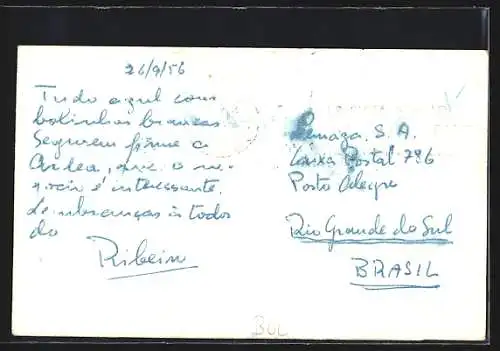 26/9/56
Tudo azul com
bolinhas brancas
Segurem firme a
que o ne-
gocio é interessante.
Lembranças à todos
do
Ribeiro
Lenaga S. A.
Caixa Postal 796
Porto Alegre
Rio Grande do Sul
BRASIL